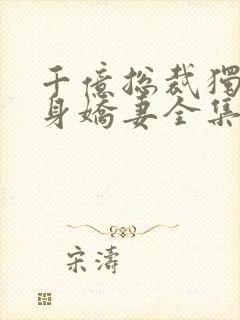 千億总裁獨
身嬌妻全集
宋濤